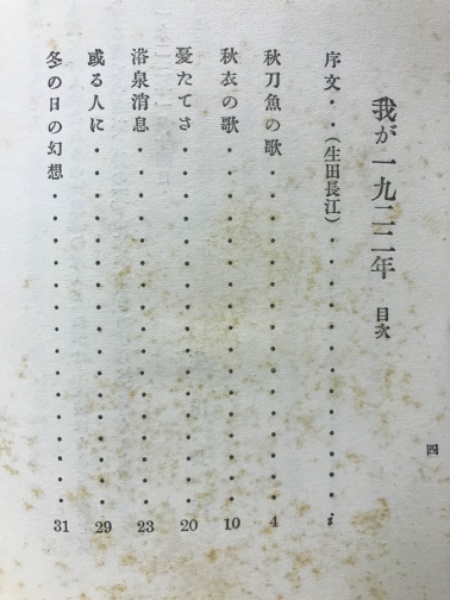 我が一九二二年 目次
序文・・(生田長江)・・・・・・・・・・・・i
秋刀魚の歌・・・・・・・・・・・・・・・4
秋衣の歌・・・・・・・・・・・・・・・・10
憂たてさ・・・・・・・・・・・・・・・・20
浴泉消息・・・・・・・・・・・・・・・・23
或る人に・・・・・・・・・・・・・・・・29
冬の日の幻想・・・・・・・・・・・・・・31
四